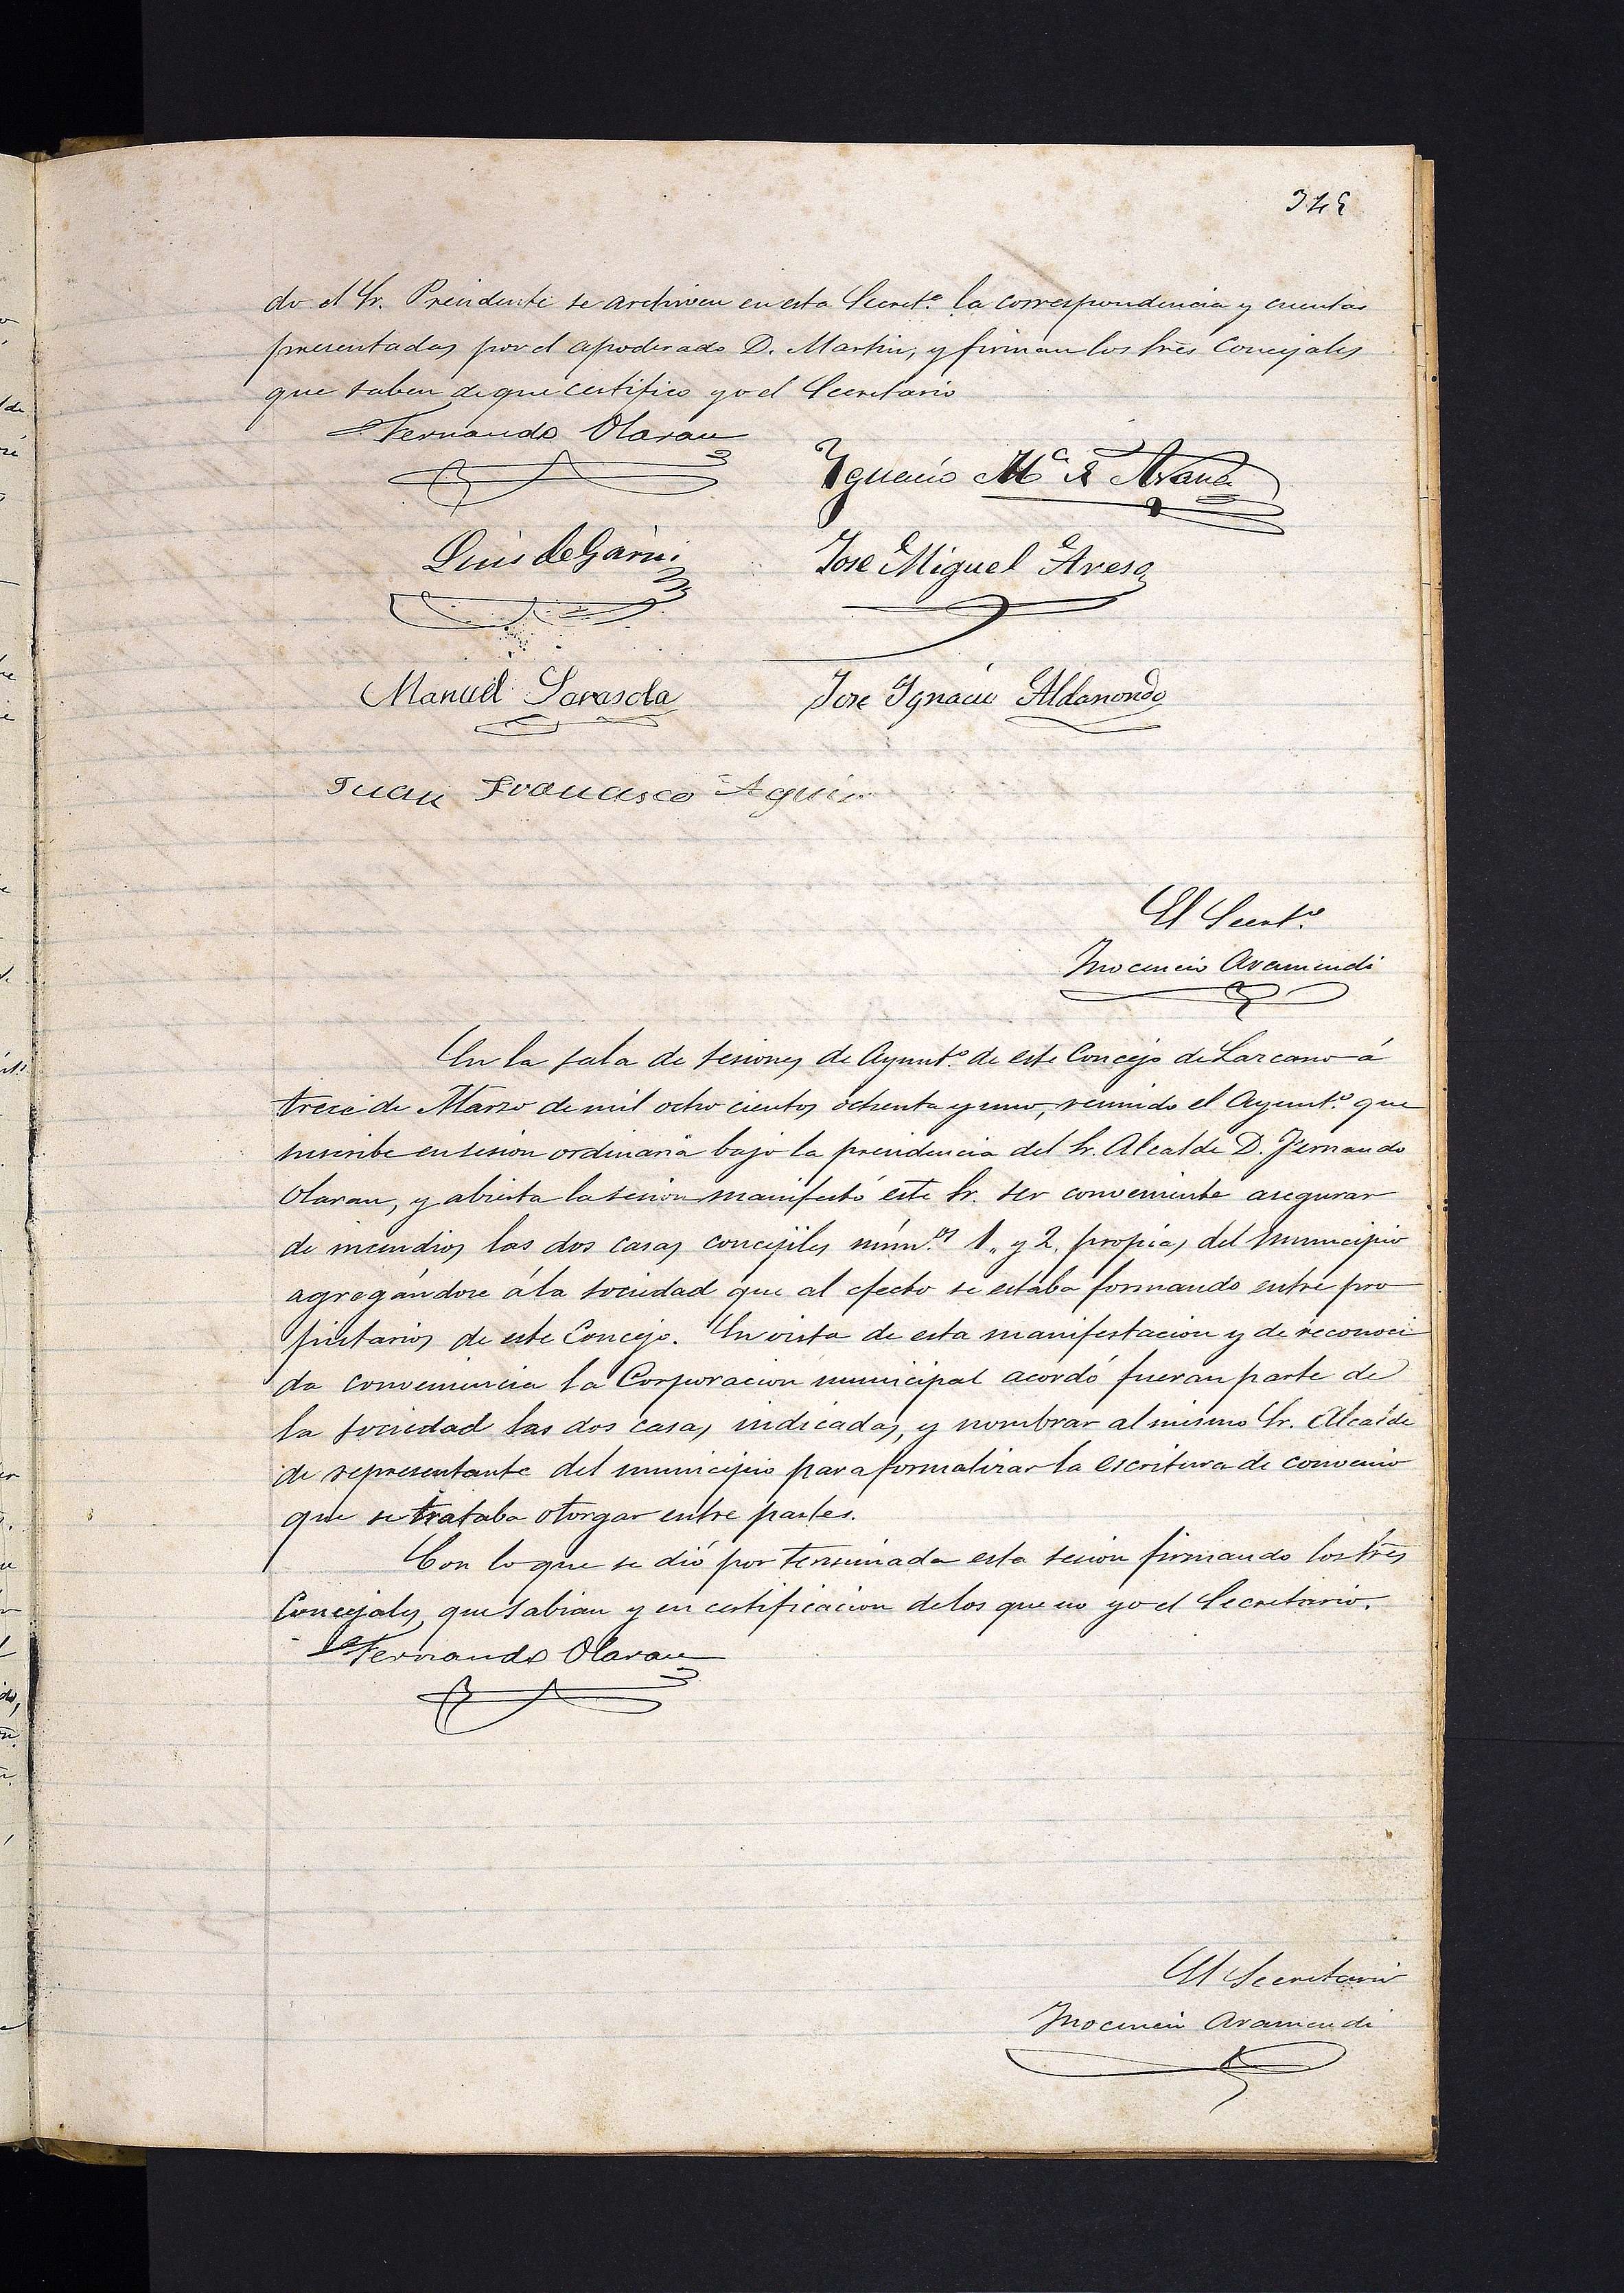 do el Sr. Presidente se archiven en esta Secret.ª la correspondencia y cuentas
presentadas por el apoderado D. Martin, y firman los Sres Concejales
que saben de que certifico yo el Secretario
Fernando Olaran
Ignacio Mª de Arana
Luis de Garin
Jose Miguel Aresa
Manuel Sarasola
Jose Ignacio Aldanondo
Juan Francisco
El Secret.º
Inocencio Aramendi
En la sala de sesiones de Ayunt.º de este Concejo de Lazcano á
trece de Marzo de mil ocho cientos ochenta y uno, reunido el Ayunt.º que
suscribe en sesion ordinaria bajo la presidencia del Sr. Alcalde D. Fernando
Olaran, y abierta la sesion manifestó este Sr. ser conveniente asegurar
de incendios las dos casas concejiles núm.os 1, y 2, propias del Municipio
agregándose á la sociedad que al efecto se estaba formando entre pro
pietarios de este Concejo. En vista de esta manifestacion y de reconoci
da conveniencia la Corporacion municipal acordó fueran parte de
la sociedad las dos casas indicadas, y nombrar al mismo Sr. Alcalde
de representante del municipio para formalizar la escritura de convenio
que se trataba otorgar entre partes.
Con lo que se dió por terminada esta sesion firmando los Sres
Concejales que sabian y en certificacion de los que no yo el Secretario.
Fernando Olaran
El Secretario
Inocencio Aramendi